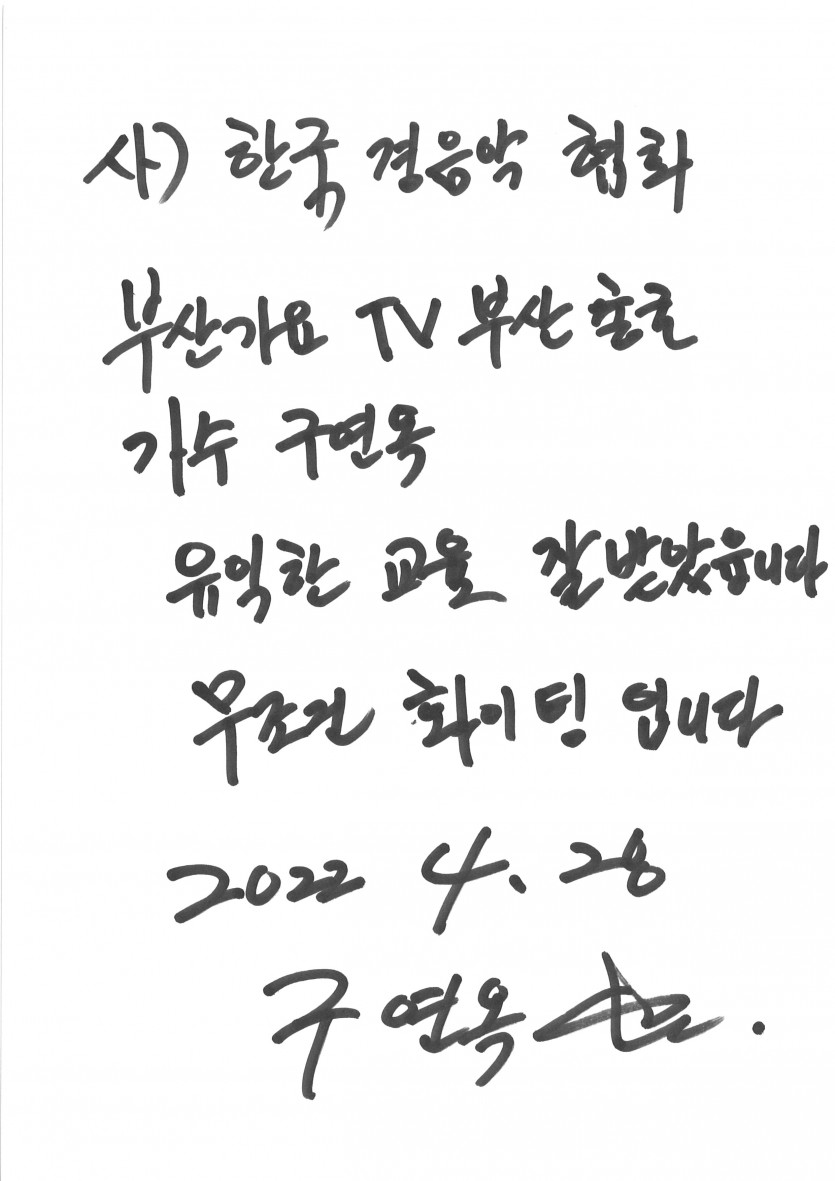 사) 한국 경음악 협회
부산가요 TV 부산
가수 구연옥
유익한 교육 잘 받았읍니다
무조건 화이팅 입니다
2022 4. 28
구연옥